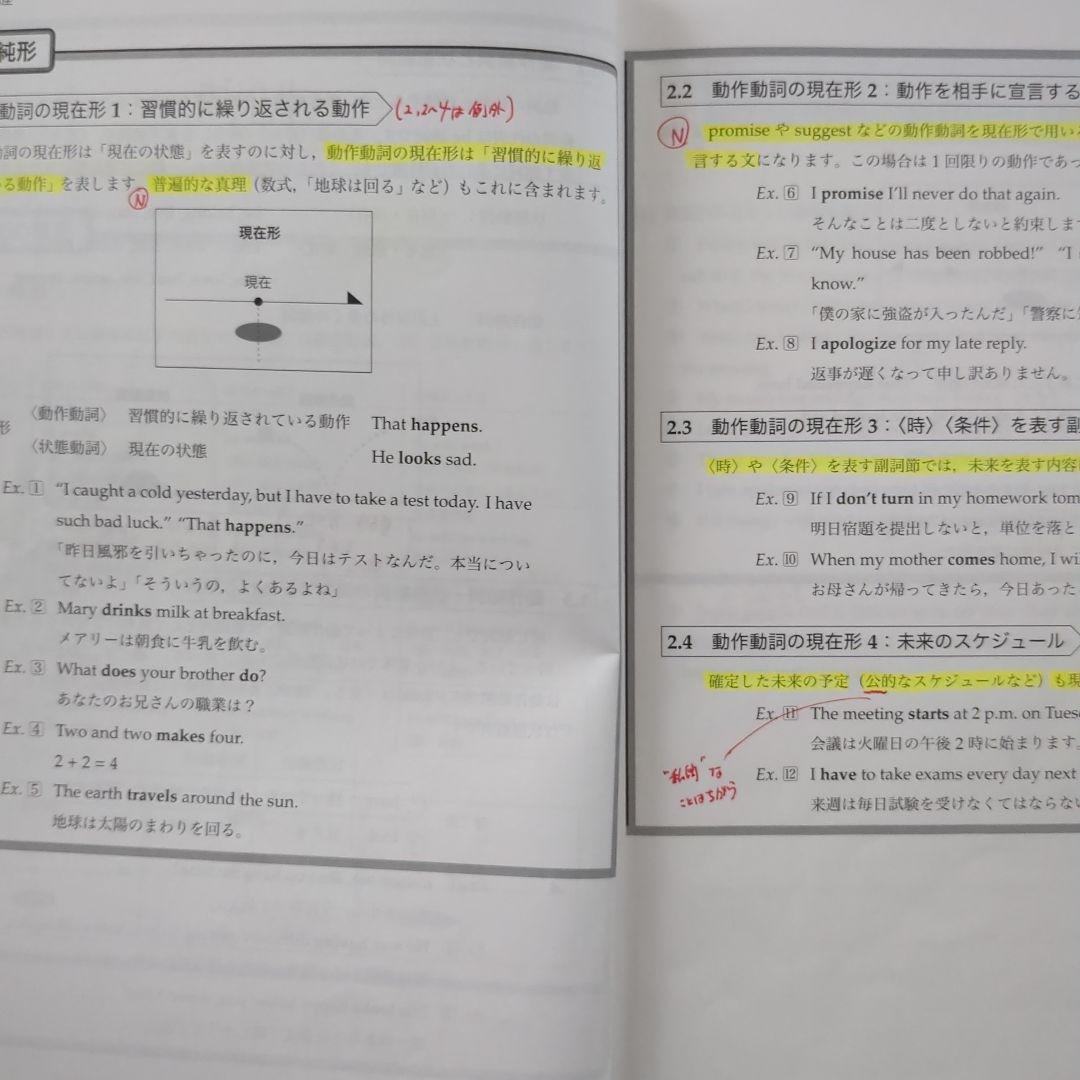 純形
動詞の現在形 1：習慣的に繰り返される動作 (2,2~4は例外)
詞の現在形は「現在の状態」を表すのに対し，動作動詞の現在形は「習慣的に繰り返
る動作」を表します。普遍的な真理（数式，「地球は回る」など）もこれに含まれます。
N
現在形
現在
形
〈動作動詞〉 習慣的に繰り返されている動作 That happens.
〈状態動詞〉 現在の状態 He looks sad.
Ex. 1 “I caught a cold yesterday, but I have to take a test today. I have
such bad luck.” “That happens.”
「昨日風邪を引いちゃったのに，今日はテストなんだ。本当につい
てないよ」「そういうの，よくあるよね」
Ex. 2 Mary drinks milk at breakfast.
メアリーは朝食に牛乳を飲む。
Ex. 3 What does your brother do?
あなたのお兄さんの職業は？
Ex. 4 Two and two makes four.
2 + 2 = 4
Ex. 5 The earth travels around the sun.
地球は太陽のまわりを回る。
2.2 動作動詞の現在形 2：動作を相手に宣言する
N promise や suggest などの動作動詞を現在形で用い
言する文になります。この場合は 1 回限りの動作であっ
Ex. 6 I promise I’ll never do that again.
そんなことは二度としないと約束しま
Ex. 7 “My house has been robbed!” “I
know.”
「僕の家に強盗が入ったんだ」「警察に
Ex. 8 I apologize for my late reply.
返事が遅くなって申し訳ありません。
2.3 動作動詞の現在形 3：〈時〉〈条件〉を表す副
〈時〉や〈条件〉を表す副詞節では，未来を表す内容
Ex. 9 If I don’t turn in my homework tom
明日宿題を提出しないと，単位を落と
Ex. 10 When my mother comes home, I wi
お母さんが帰ってきたら，今日あった
2.4 動作動詞の現在形 4：未来のスケジュール
確定した未来の予定（公的なスケジュールなど）も現
Ex. 11 The meeting starts at 2 p.m. on Tues
会議は火曜日の午後 2 時に始まります。
"私的"な
ことはちがう
Ex. 12 I have to take exams every day next
来週は毎日試験を受けなくてはならない